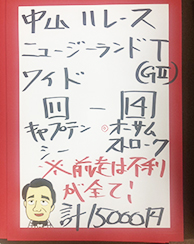 中山11レース
ニュージーランドT
(GII)
ワイド
11 - 14
キャプテン ◎オーサム
シー ストローク
※前走は不利
が全て!
計15000円